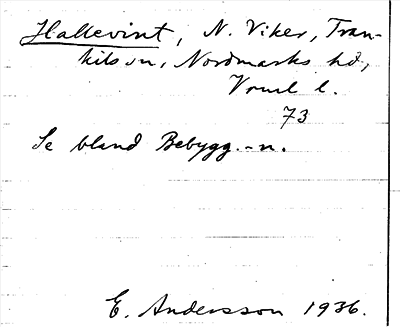 Hallevint, N. Viker, Tran-
kils sn, Nordmarks hd,
Vrml l.
73
Se bland Bebygg.-n.
E. Andersson 1936.